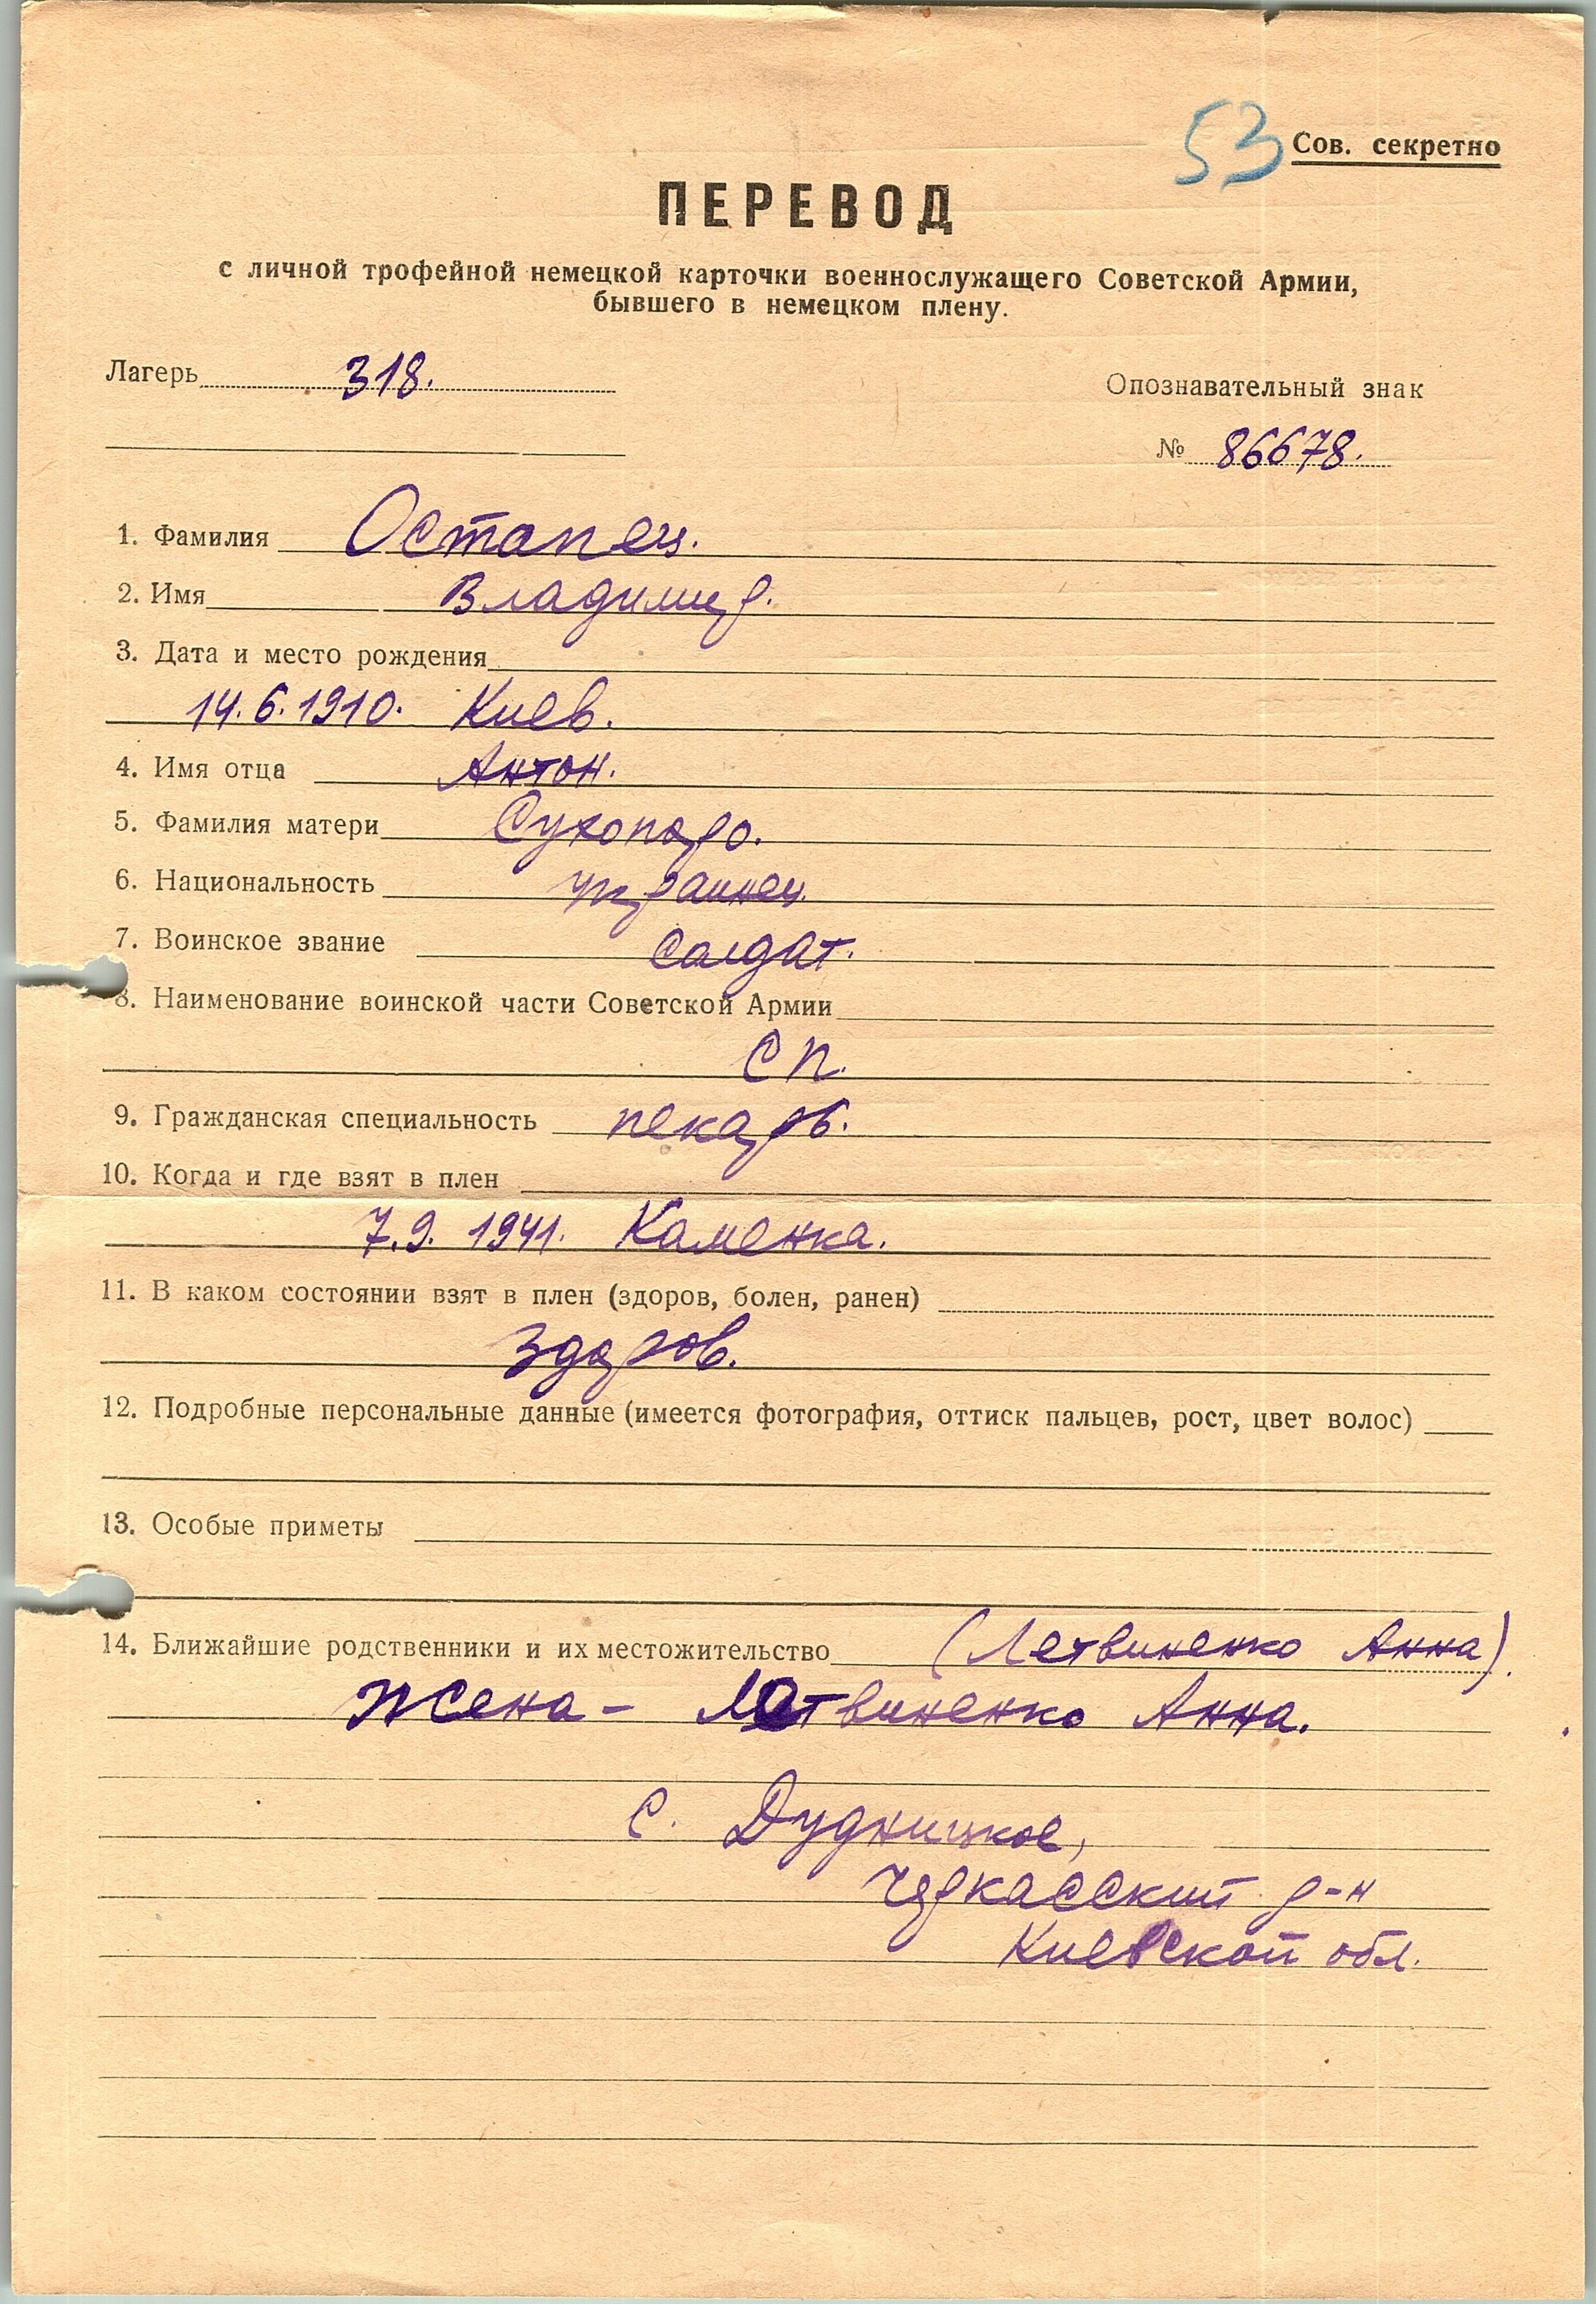 53 Сов. секретно
ПЕРЕВОД
с личной трофейной немецкой карточки военнослужащего Советской Армии,
бывшего в немецком плену.
Лагерь 318.
Опознавательный знак
№ 86678.
1. Фамилия Остапец.
2. Имя Владимир.
3. Дата и место рождения
14.6.1910. Киев.
4. Имя отца Антон.
5. Фамилия матери Сухопаро.
6. Национальность украинец.
7. Воинское звание солдат.
8. Наименование воинской части Советской Армии
СП.
9. Гражданская специальность пекарь.
10. Когда и где взят в плен
7.9. 1941. Каменка.
11. В каком состоянии взят в плен (здоров, болен, ранен)
здоров.
12. Подробные персональные данные (имеется фотография, оттиск пальцев, рост, цвет волос)
13. Особые приметы
14. Ближайшие родственники и их местожительство (Летвиненко Анна).
Жена - Летвиненко Анна.
с. Дудницкое,
Черкасский р-н
Киевской обл.